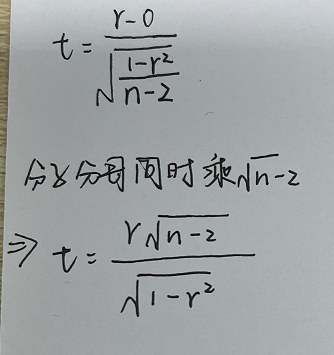 t = \frac{r-0}{\sqrt{\frac{1-r^2}{n-2}}}
分子分母同时乘√n-2
⇒ t = \frac{r\sqrt{n-2}}{\sqrt{1-r^2}}